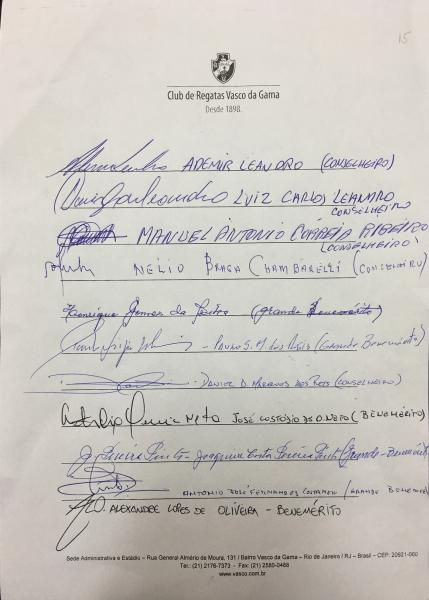 15
Club de Regatas Vasco da Gama
Desde 1898.
ADEMIR LEANDRO (CONSELHEIRO)
LUIZ CARLOS LEANDRO
CONSELHEIRO
MANUEL ANTONIO CORREIA RIBEIRO
(CONSELHEIRO)
NELIO BRAGA CHAMBARELLI (CONSELHEIRO)
Henrique Gomes da (Grande Benemérito)
PAULO S. M. dos REIS (GRANDE BENEMÉRITO)
DANIEL D. DOS REIS (CONSELHEIRO)
Neto JOSÉ CUSTÓDIO D. O. NETO (BENEMÉRITO)
Joaquim Costa Pereira Pinto (Grande-Benemérito
ANTONIO JOSÉ FERNANDES (GRANDE BENEMÉ
ALEXANDRE LOPES DE OLIVEIRA - BENEMÉRITO
Sede Administrativa e Estádio – Rua General Almério de Moura, 131 / Bairro Vasco da Gama – Rio de Janeiro / RJ – Brasil – CEP: 20921-060
Tel.: (21) 2176-7373 - Fax: (21) 2580-0488
www.vasco.com.br